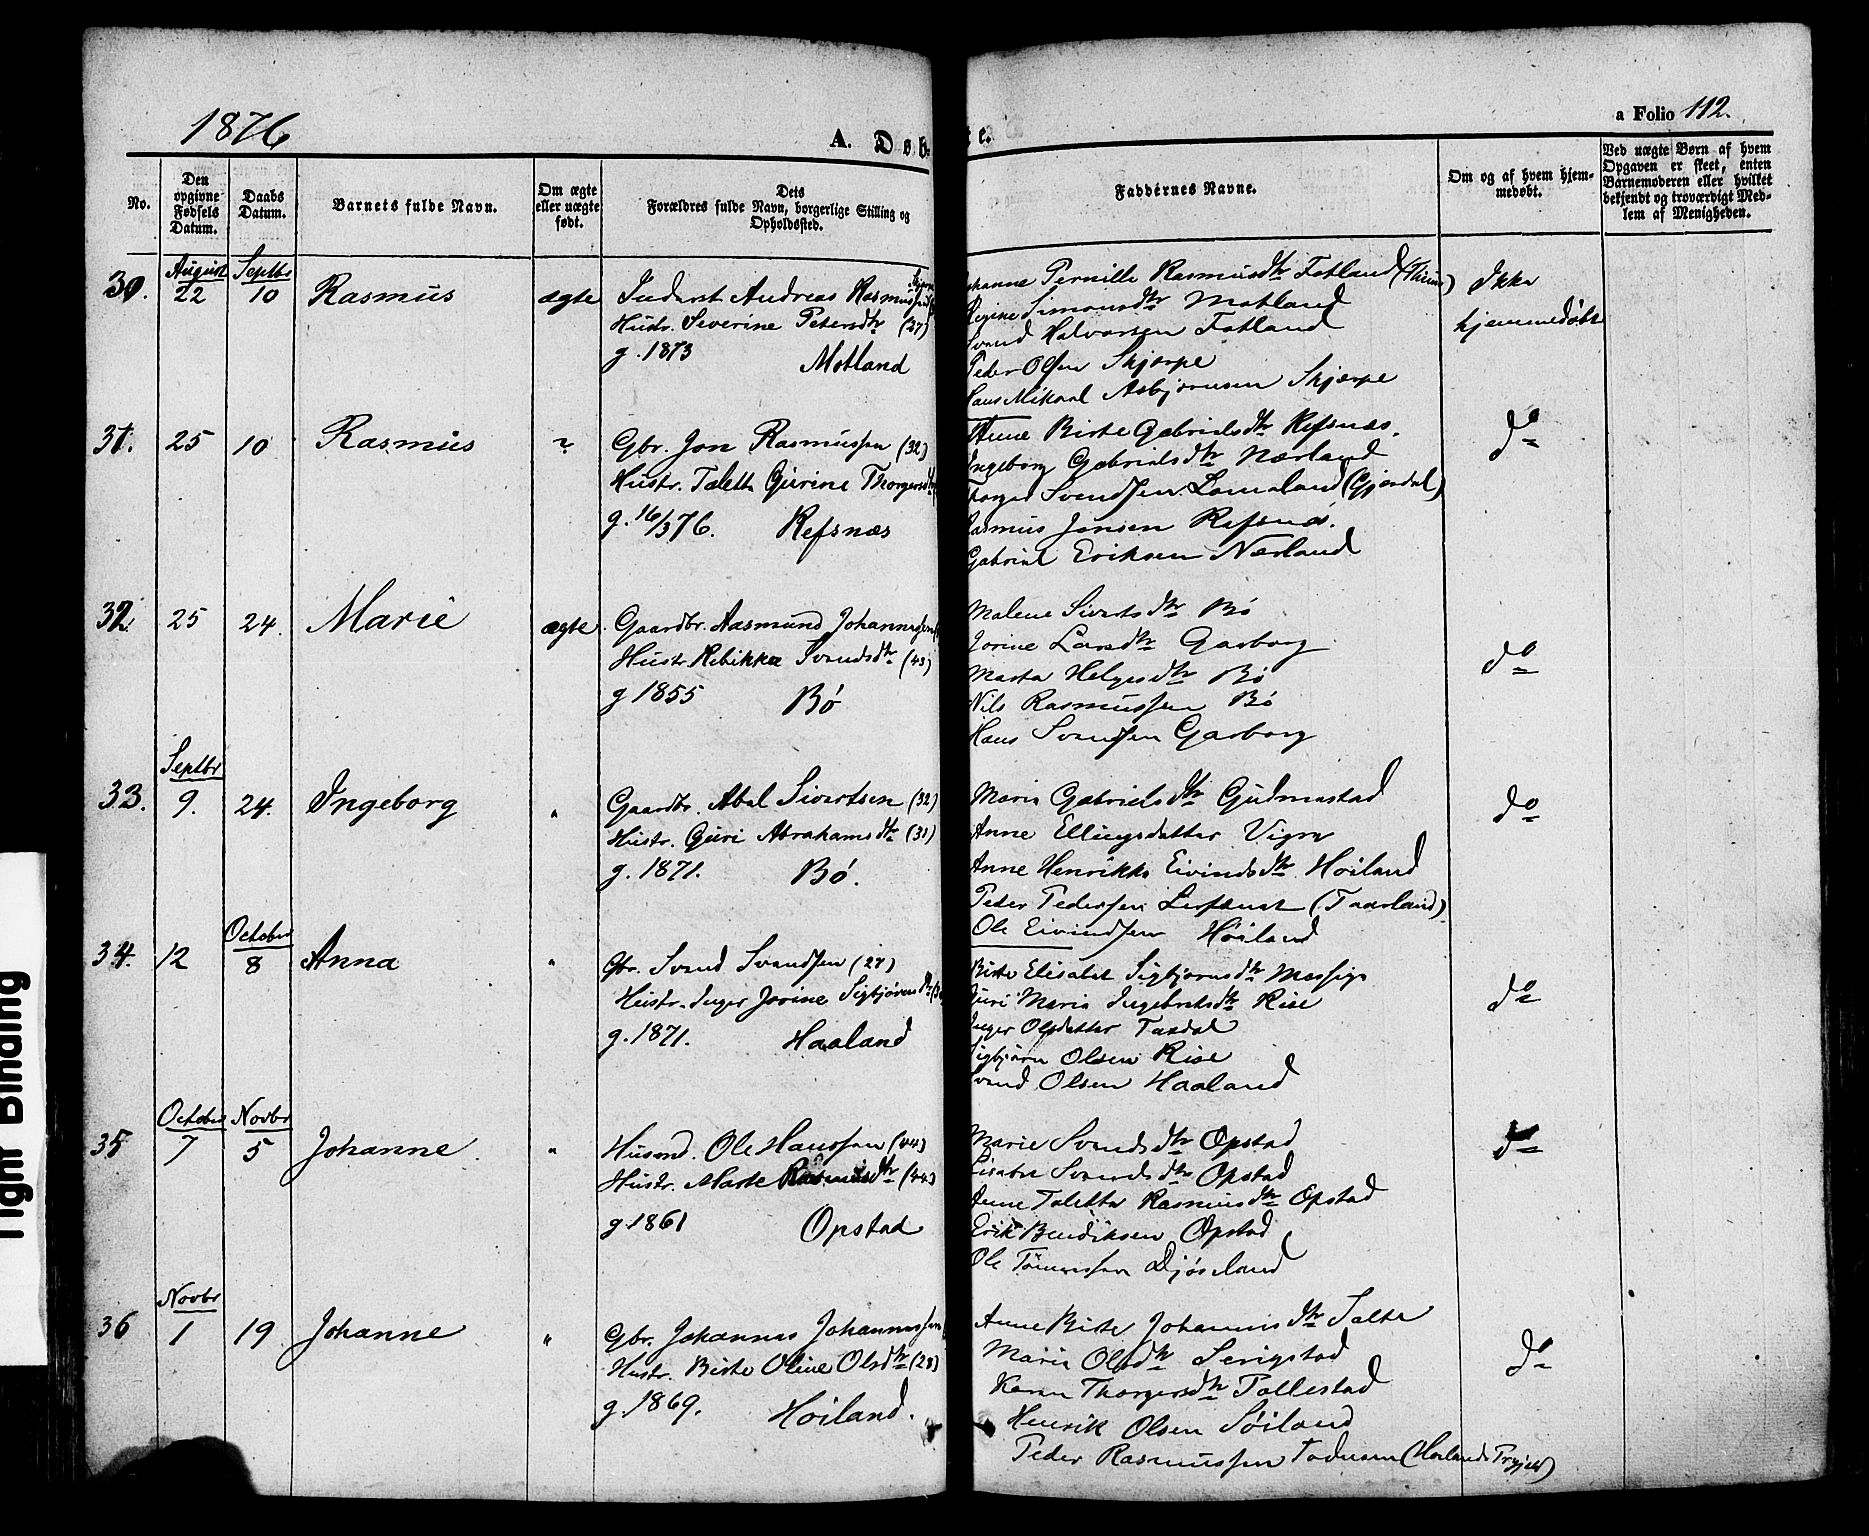 1876
A. Døb-
te.
a Folio 112.
No.
Den opgivne Fødsels Datum.
Daabs Datum.
Barnets fulde Navn.
Om ægte eller uægte født.
Dets Forældres fulde Navn, borgerlige Stilling og Opholdssted.
Faddernes Navne.
Om og af hvem hjemmedøbt.
Ved uægte Børn af hvem Opgaven er skeet, enten Barnemoderen eller hvilket bekjendt og troværdigt Medlem af Menigheden.
30. August 22 Septbr 10 Rasmus ægte
Inderst Andreas Rasmussen
Hustr. Severine Petersdtr (27)
g. 1873 Motland
Johanne Pernille Rasmusdtr Fotland (Thime)
Regine Simonsdtr Motland
Svend Halvorsen Fotland
Peder Olsen Skjærpe
Hans Mikael Asbjørnsen Skjærpe
Ikke
hjemmedøbt
31. 25 10 Rasmus
Gbr. Jon Rasmussen (32)
Hustr. Taletta Gurine Thorgersdtr
g. 16/3 76. Refsnæs
Anne Birte Gabrielsdtr Refsnæs.
Ingeborg Gabrielsdtr Nærland
Thorger Svendsen Lomeland (Gjesdal)
Rasmus Jonsen Refsnæs.
Gabriel Eriksen Nærland
do
32. 25 24. Marie ægte
Gaardbr. Aasmund Johannessen
Hustr Rebikka Svendsdtr (43)
g 1855 Bø
Malene Sivertsdtr Bø
Jorine Larsdtr Garborg
Marta Helgesdtr Bø
Nils Rasmussen Bø
Hans Svendsen Garborg
do
33. Septbr 9. 24. Ingeborg "
Gaardbr. Abel Sivertsen (32)
Hustr. Guri Abrahamsdtr (31)
g. 1871. Bø.
Maria Gabrielsdtr Gudmestad
Anne Ellingsdatter Vigre
Anne Henrikke Eivindsdtr Høiland
Peder Pedersen (Taarland)
Ole Eivindsen Høiland
do
34. 12 October 8 Anna "
Gbr. Svend Svendsen (27)
Hustr. Inger Jorine Sigbjørnsdtr
g. 1871. Haaland
Birte Elisabet Sigbjørnsdtr Mossige
Guri Maria Ingebretsdtr Rise
Inger Olsdatter Taxdal
Sigbjørn Olsen Rise
Svend Olsen Haaland
do
35 October 7 Novbr 5 Johanne "
Husmd. Ole Hanssen (44)
Hustr. Marte Rasmusdtr (44)
g. 1861 Opstad
Marie Svendsdtr Opstad
Lisabet Svendsdtr Opstad
Anne Taletta Rasmusdtr Opstad
Erik Bendiksen Opstad
Ole Tønnessen Djøseland
do
36 Novbr 1 19 Johanne "
Gbr. Johannes Johannessen
Hustr. Birte Oline Olsdtr (28)
g. 1869. Høiland.
Anne Birte Johannesdtr Salte
Maria Olsdtr Serigstad
Karen Thorgersdtr Tollestad
Henrik Olsen Søiland
Peder Rasmussen
do
Tight Binding